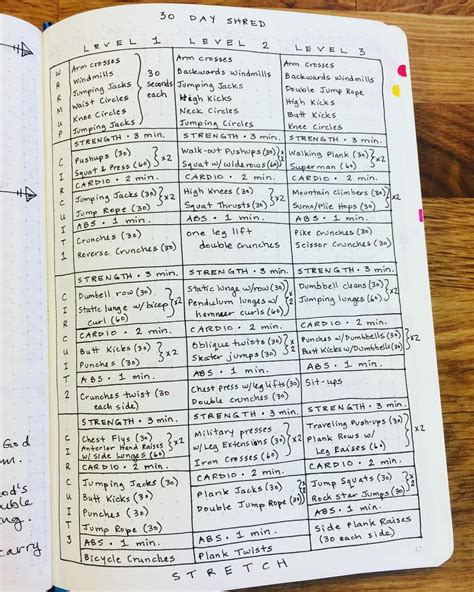 30 DAY SHRED
LEVEL 1
LEVEL 2
LEVEL 3
WARMUP
Arm crosses
Windmills
Jumping Jacks
Waist Circles
Knee Circles
Jumping Jacks
30
seconds
each
Arm crosses
Backwards windmills
Jumping Jacks
High Kicks
Neck Circles
Jumping Jacks
Arm crosses
Backwards windmills
Double Jump Rope
High Kicks
Butt Kicks
Knee Circles
CIRCUIT 1
STRENGTH • 3 min.
Pushups (30)
Squat & Press (60)
x2
STRENGTH • 3 min.
Walk-out Pushups (30)
x2
STRENGTH • 3 min.
Walking Plank (30)
Superman (60)
x2
CARDIO • 2 min.
Jumping Jacks (30)
Jump Rope (30)
x2
CARDIO • 2 min.
High Knees (30)
Squat Thrusts (30)
x2
CARDIO • 2 min.
Mountain climbers (30)
Sumo/Plie Hops (30)
x2
ABS • 1 min.
Crunches (30)
Reverse Crunches (30)
ABS • 1 min.
one leg lift
double crunches
ABS • 1 min.
Pike crunches (30)
Scissor Crunches (30)
CIRCUIT 2
STRENGTH • 3 min.
Dumbell row (30)
Static lunge w/ bicep
curl (60)
x2
STRENGTH • 3 min.
Static lunge w/row (30)
Pendulum lunges w/
hammer curls (60)
x2
STRENGTH • 3 min.
Dumbbell cleans (30)
Jumping lunges (60)
x2
CARDIO • 2 min.
Butt Kicks (30)
Punches (30)
x2
CARDIO • 2 min.
Oblique twists (30)
Skater jumps (30)
x2
CARDIO • 2 min.
Punches w/Dumbbells (30)
Butt Kicks w/Dumbbells (30)
x2
ABS • 1 min.
Crunches twist (30
each side)
ABS • 1 min.
Chest press w/leg lifts (30)
Double Crunches (30)
ABS • 1 min.
Sit-ups
CIRCUIT 3
STRENGTH • 3 min.
Chest Flys (30)
Anterior Hand Raises
w/ Side Lunges (60)
x2
STRENGTH • 3 min.
Military presses
w/Leg Extensions (30)
Iron Crosses (60)
x2
STRENGTH • 3 min.
Traveling Push-ups (30)
Plank Rows w/
Leg Raises (60)
x2
CARDIO • 2 min.
Jumping Jacks (30)
Butt Kicks (30)
Punches (30)
Jump Rope (30)
CARDIO • 2 min.
Plank Jacks (30)
Double Jump Rope (30)
x2
CARDIO • 2 min.
Jump Squats (30)
Rock Star Jumps (30)
x2
ABS • 1 min.
Bicycle Crunches
ABS • 1 min.
Plank Twists
ABS • 1 min.
Side Plank Raises
(30 each side)
STRETCH
Good
carry